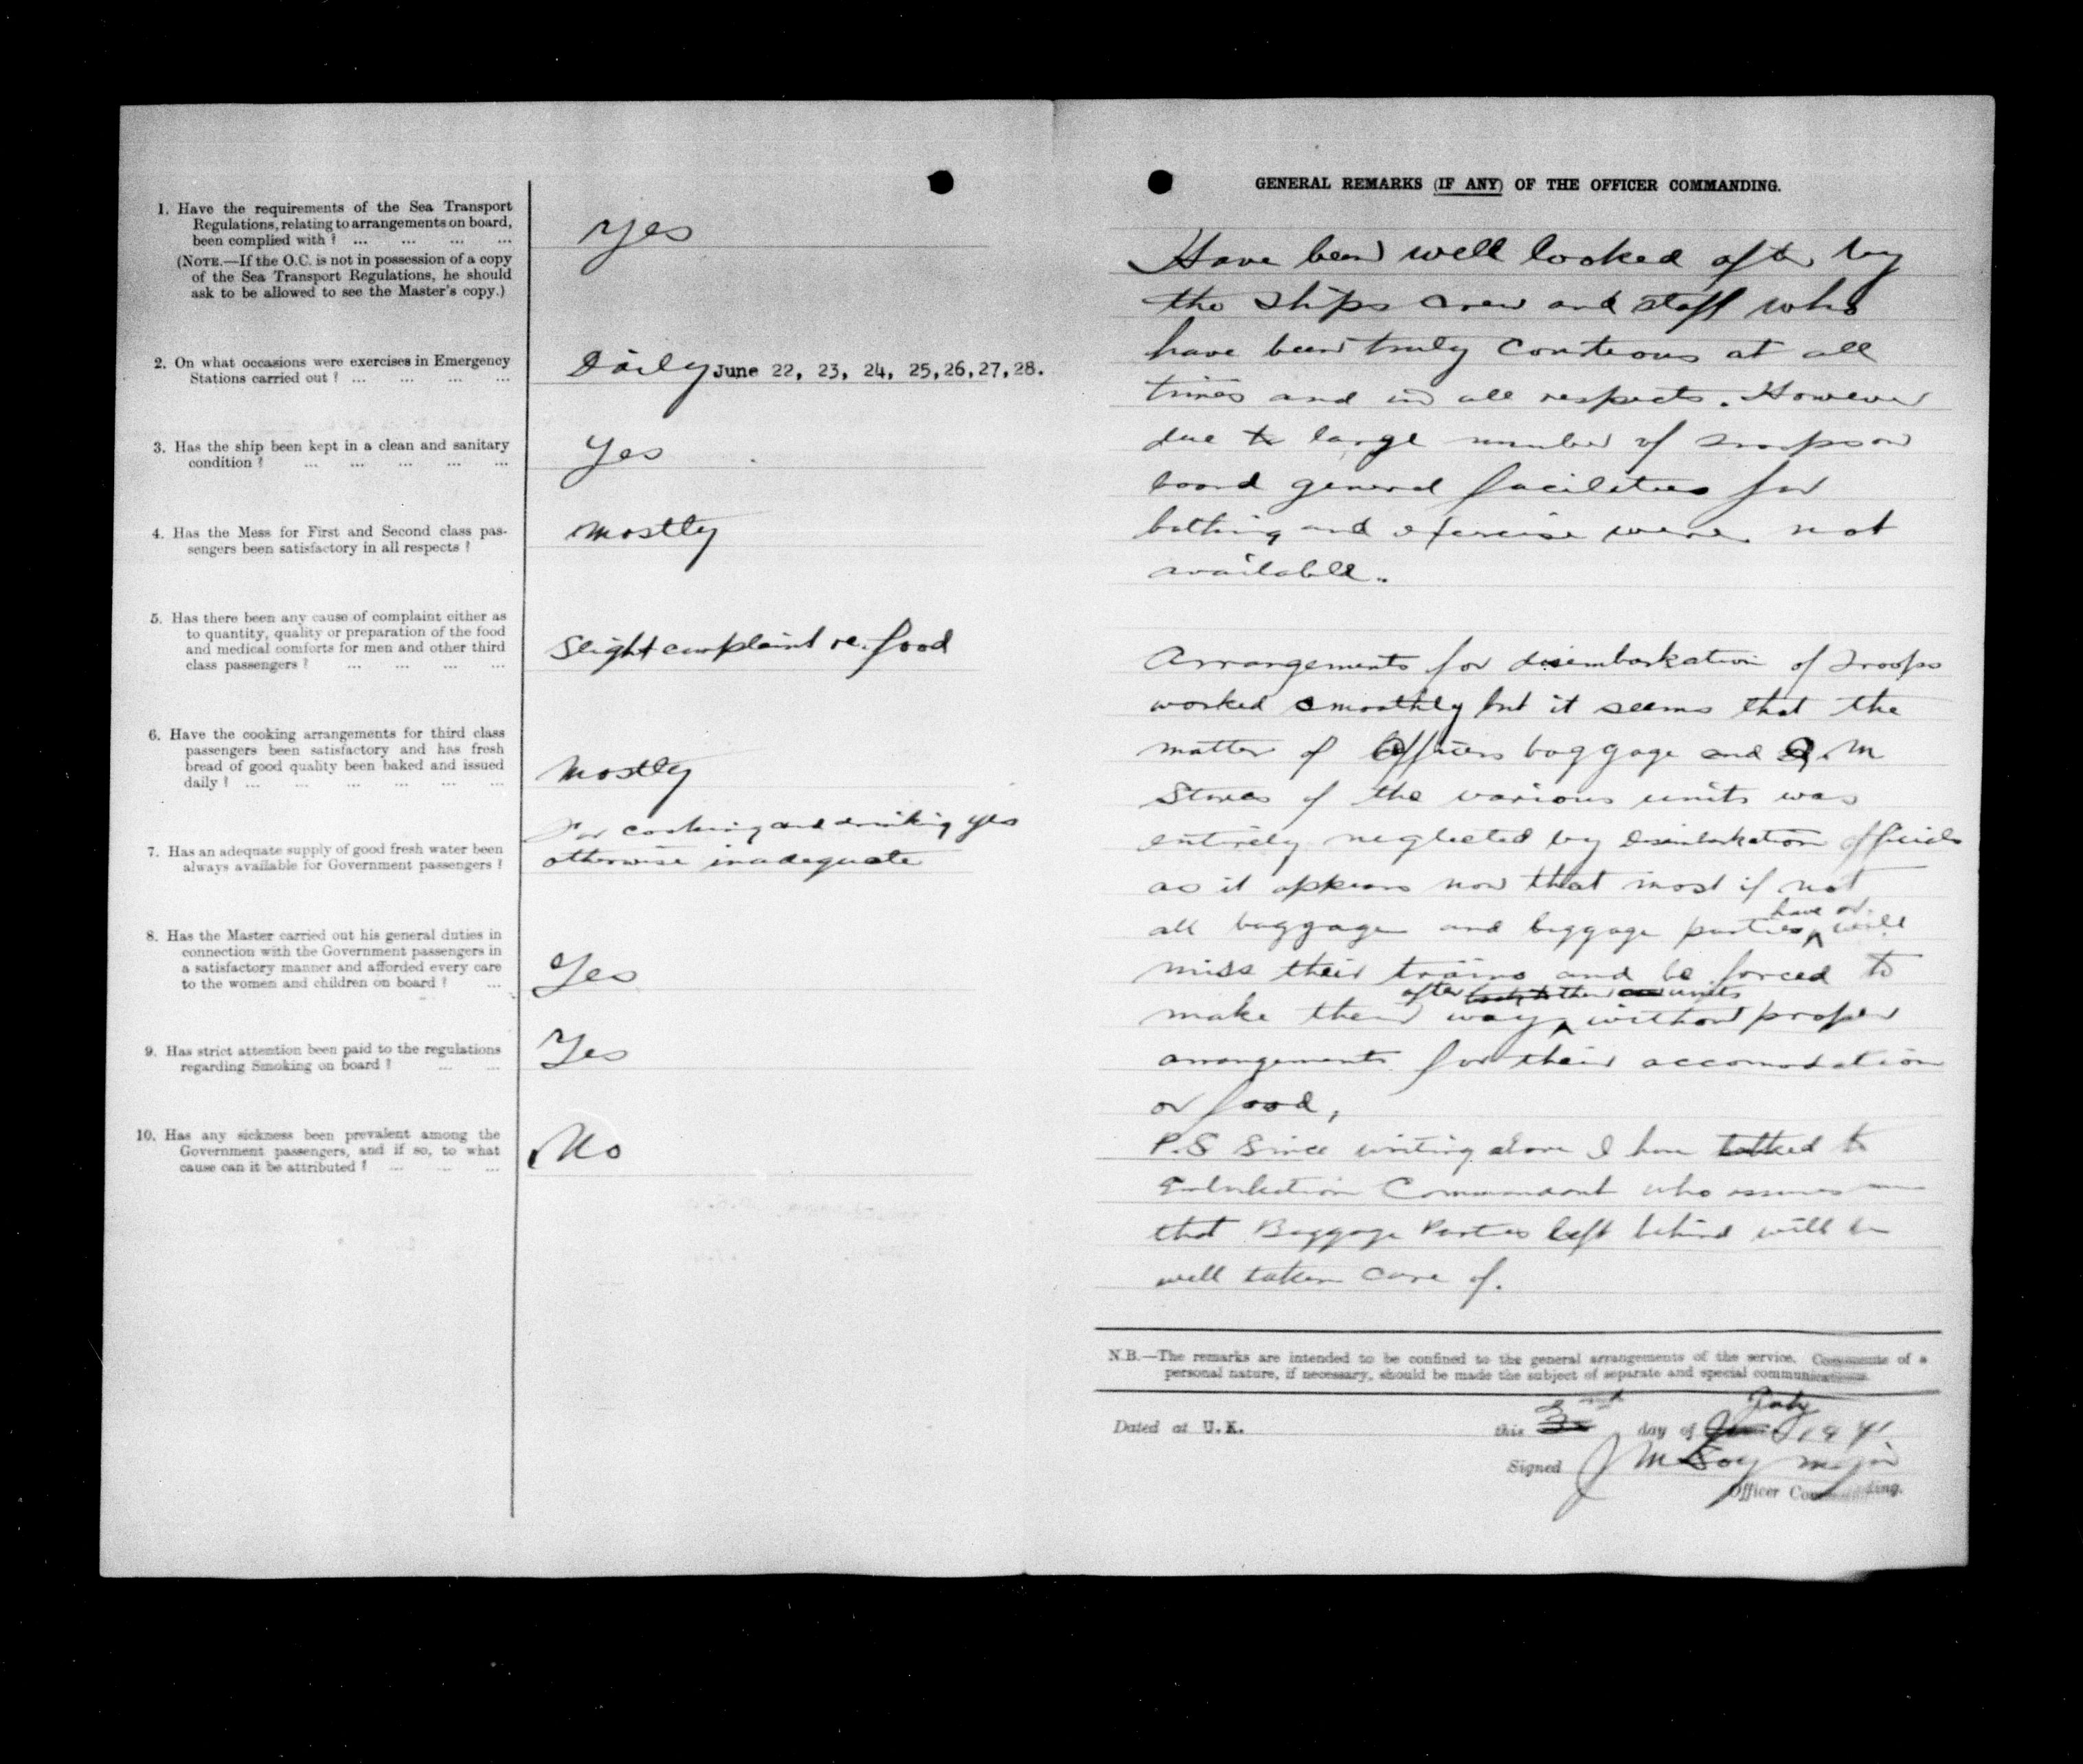 1. Have the requirements of the Sea Transport
Regulations, relating to arrangements on board,
been complied with ? ... ... ... ...
(NOTE.—If the O.C. is not in possession of a copy
of the Sea Transport Regulations, he should
ask to be allowed to see the Master's copy.)
Yes
2. On what occasions were exercises in Emergency
Stations carried out ? ... ... ... ...
Daily June 22, 23, 24, 25,26,27,28.
3. Has the ship been kept in a clean and sanitary
condition ? ... ... ... ... ...
Yes
4. Has the Mess for First and Second class pas-
sengers been satisfactory in all respects ?
Mostly
5. Has there been any cause of complaint either as
to quantity, quality or preparation of the food
and medical comforts for men and other third
class passengers ? ... ... ... ...
Slight complaint re. food
6. Have the cooking arrangements for third class
passengers been satisfactory and has fresh
bread of good quality been baked and issued
daily ? ... ... ... ... ... ...
Mostly
7. Has an adequate supply of good fresh water been
always available for Government passengers ?
For cooking and drinking yes
otherwise inadequate
8. Has the Master carried out his general duties in
connection with the Government passengers in
a satisfactory manner and afforded every care
to the women and children on board ? ...
Yes
9. Has strict attention been paid to the regulations
regarding Smoking on board ? ... ...
Yes
10. Has any sickness been prevalent among the
Government passengers, and if so, to what
cause can it be attributed ? ... ... ...
No
GENERAL REMARKS (IF ANY) OF THE OFFICER COMMANDING.
Have been well looked after by
the ships crew and staff who
have been truly courteous at all
times and in all respects. However
due to large number of troops on
board general facilities for
bathing and exercise were not
available.
Arrangements for disembarkation of troops
worked smoothly but it seems that the
matter of Officers baggage and Q.M
Stores of the various units was
entirely neglected by Disembarkation officials
as it appears now that most if not
all baggage and baggage parties have or will
miss their trains and be forced to
make their way after units without proper
arrangements for their accomodation
or food,
P.S Since writing above I have talked to
Commandant who assures me
that Baggage Parties left behind will be
well taken care of.
N.B.—The remarks are intended to be confined to the general arrangements of the service. Comments of a
personal nature, if necessary, should be made the subject of separate and special communications.
Dated at U.K. this day of July 1941
Signed J McLoy Major
Officer Commanding.